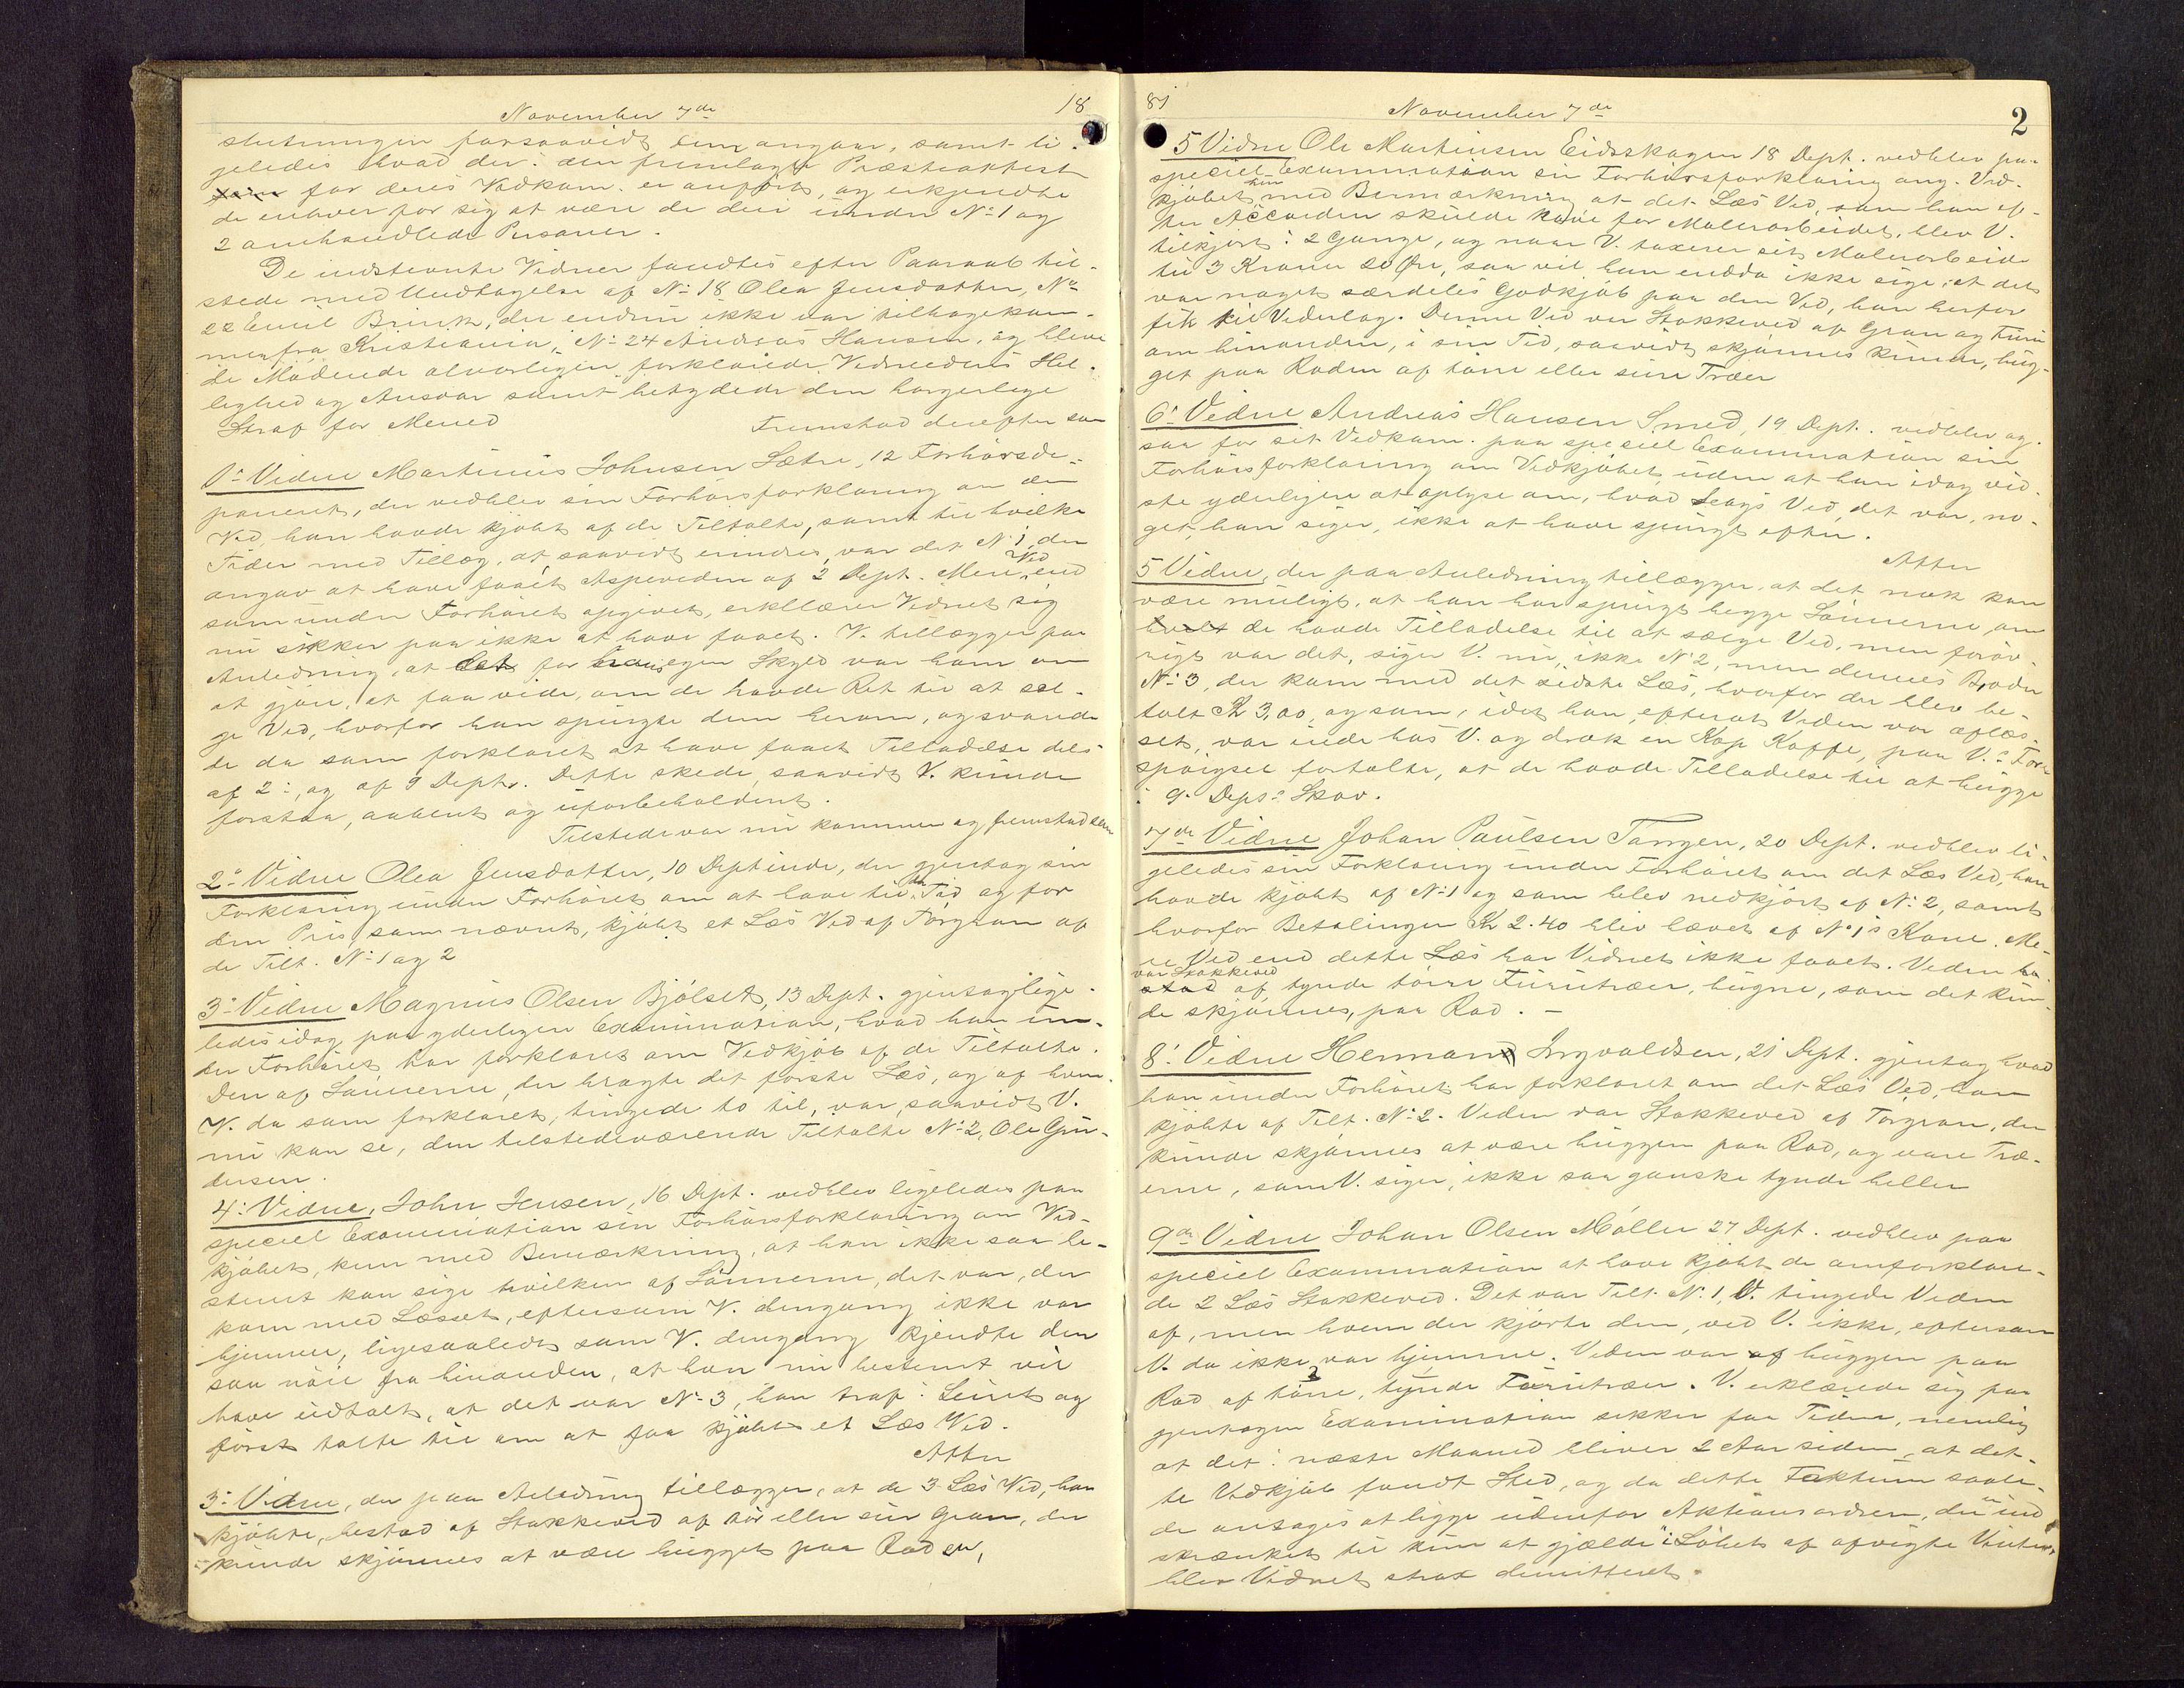 November 7de
18
slutningen forsaavidt dem angaar, samt li-
geledes hvad der i den fremlagte Præsteattest
for deres Vedkom. er anført, og erkjendte
de enhver for sig at være de deri under No 1 og
2 omhandlede Personer.
De indstevnte Vidner fandtes efter Paaraab til-
stede med Undtagelse af No 18 Olea Jensdatter, No
22 Emil Brink, der endnu ikke var tilbagekom-
men fra Kristiania, No 24 Andreas Hansen, og bleve
de Mødende alvorligen forklarede Vidneedens Hel-
lighed og Ansvar samt betydede den borgerlige
Straf for Mened
Fremstod derefter som
1ste Vidne Martinius Johnsen Sætre, 12 Forhørsde-
ponent, der vedblev sin Forhørsforklaring om den
Ved, han havde kjøbt af de Tiltalte, samt til hvilke
Tider med Tillæg, at saavidt erindres, var det No 1, der
angav at have faaet Aspeveden af 2 Dept. Mere Ved end
som under Forhøret opgivet, erkllærer Vidnet sig
nu sikker paa ikke at have faaet. V. tillægger paa
Anledning, at det for hans egen Skyld var ham om
at gjøre, at faa vide, om de havde Ret til at sæl-
ge Ved, hvorfor han spurgte dem herom, og svarede
de da som forklaret at have faaet Tilladelse dels
af 2:, og af 9 Dept. Dette skede, saavidt V. kunde
forstaa, aabent og uforbeholdent.
Tilstede var nu kommen og fremstod som
2det Vidne Olea Jensdatter, 10 Deptinde, der gjentog sin
Forklaring under Forhøret om at have til den Tid og for
den Pris, som nævnt, kjøbt et Læs Ved af Tørgran af
de Tilt. No 1 og 2
3die Vidne Magnus Olsen Bjølset, 13 Dept. gjentog lige-
ledes idag paa yderligere Examination, hvad han un-
der Forhøret har forklaret om Vedkjøb af de Tiltalte.
Den af Sønnerne, der bragte det første Læs, og af hvem
V. da som forklaret, tingede to til, var, saavidt V.
nu kan se, den tilstedeværende Tiltalte No 2, Ole Gun-
dersen.
4de Vidne, John Jensen, 16 Dept. vedblev ligeledes paa
speciel Examination sin Forhørsforklaring om Ved-
kjøbet, kun med Bemærkning, at han ikke saa be-
stemt kan sige hvilken af Sønnerne, det var, der
kom med Læsset, eftersom V. dengang ikke var
hjemme, ligesaaledes som V. dengang kjendte dem
saa nøie fra hinanden, at han nu bestemt vil
have udtalt, at det var No 3, han traf i Leiret og
først talte til om at faa kjøbt et Læs Ved.
Atter
3die Vidne, der paa Anledning tillægger, at de 3 Læs Ved, han
kjøbte, bestod af Stakkeved af tør eller sur Gran, der
kunde skjønnes at være hugget paa Roden,
81
November 7de
2
5 Vidne Ole Martinsen Eidsskogen 18 Dept. vedblev paa
speciel Examination sin Forhørsforklaring ang. Ved-
kjøbet kun med Bemærkning at det Læs Ved, som han ef-
ter Accorden skulde have for Malerarbeidet, blev V.
tilkjørt i 2 Gange, og naar V. taxerer sit Malerarbeide
til 3 Kroner 20 Øre, saa vil han endda ikke sige, at det
var noget særdeles Godkjøb paa den Ved, han herfor
fik til Vederlag. Denne Ved var Stakkeved af Gran og Furu
om hinanden, i sin Tid, saavidt skjønnes kunde, hug-
get paa Roden af tøre eller sure Træer
6te Vidne Andreas Hansen Smed, 19 Dept. vedblev og-
saa for sit Vedkom. paa speciel Examination sin
Forhørsforklaring om Vedkjøbet, uden at han idag vid-
ste yderligere at oplyse om, hvad Slags Ved, det var, no-
get, han siger, ikke at have spurgt efter.
Atter
5 Vidne, der paa Anledning tillægger, at det nok kan
være muligt, at han har spurgt begge Sønnerne, om
de havde Tilladelse til at sælge Ved, men forøv-
rigt var det, siger V. nu, ikke No 2, men dennes Broder
No 3, der kom med det sidste Læs, hvorfor der blev be-
talt Kr 3,00, og som, idet han, efterat Veden var aflæs-
set, var inde hos V. og drak en Kop Kaffe, paa V.s Fore-
spørgsel fortalte, at de havde Tilladelse til at hugge
i 9. Depts Skov.
7de Vidne Johan Paulsen Tangen, 20 Dept. vedblev li-
geledes sin Forklaring under Forhøret om det Læs Ved, han
havde kjøbt af No 1 og som blev nedkjørt af No 2, samt
hvorfor Betalingen Kr 2.40 blev hævet af No 1s Kone. Me-
re Ved end dette Læs har Vidnet ikke faaet. Veden
var Stakkeved
af tynde tørre Furutræer, hugne, som det kun-
de skjønnes, paa Rod. -
8de Vidne Herman Ingvaldsen, 21 Dept. gjentog hvad
han under Forhøret har forklaret om det Læs Ved, han
kjøbte af Tilt. No 2. Veden var Stakkeved af Torgran, der
kunde skjønnes at være huggen paa Rod, og vare Træ-
erne, som V. siger, ikke saa ganske tynde heller
9de Vidne Johan Olsen Møller 27 Dept. vedblev paa
speciel Examination at have kjøbt de omforklare-
de 2 Læs Stakkeved. Det var Tilt. No 1, V. tingede Veden
af, men hvem der kjørte den, ved V. ikke, eftersom
V. da ikke var hjemme. Veden var huggen paa
Rod af tørre, tynde Furutræer. V. erklærede sig paa
gjentagen Examination sikker paa Tiden, nemlig
at det i næste Maaned bliver 2 Aar siden, at det-
te Vedkjøb fandt Sted, og da dette Faktum saale-
de ansages at ligge udenfor Aktionsordren, der er ind
skrænket til kun at gjælde "i Løbet af afvigte Vinter"
blev Vidnet strax demitteret.